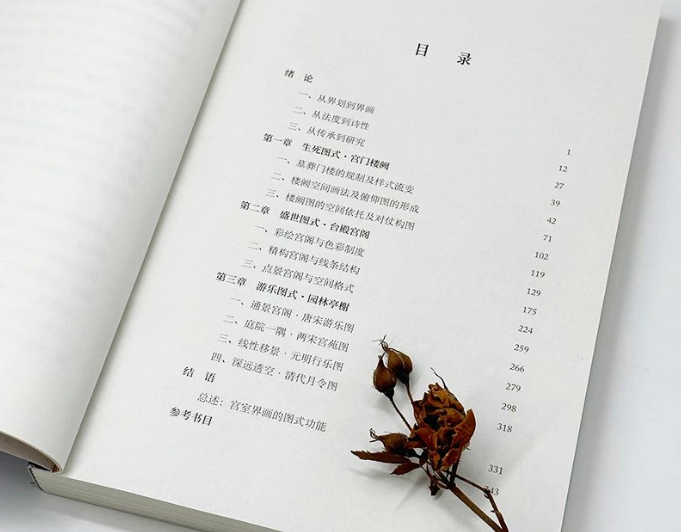 目 录
绪 论
一、从界划到界画 1
二、从法度到诗性 12
三、从传承到研究 27
第一章 生死图式·宫门楼阙 39
一、墓葬门楼的规制及样式流变 42
二、楼阙空间画法及俯仰图的形成 71
三、楼阙图的空间依托及对仗构图 102
第二章 盛世图式·台殿宫阁 119
一、彩绘宫阁与色彩制度 129
二、精构宫阁与线条结构 175
三、点景宫阁与空间格式 224
第三章 游乐图式·园林亭榭 259
一、通景宫阁·唐宋游乐图 266
二、庭院一隅·两宋宫苑图 279
三、线性移景·元明行乐图 298
四、深远透空·清代月令图 318
结 语
总述：宫室界画的图式功能 331
参考书目 343